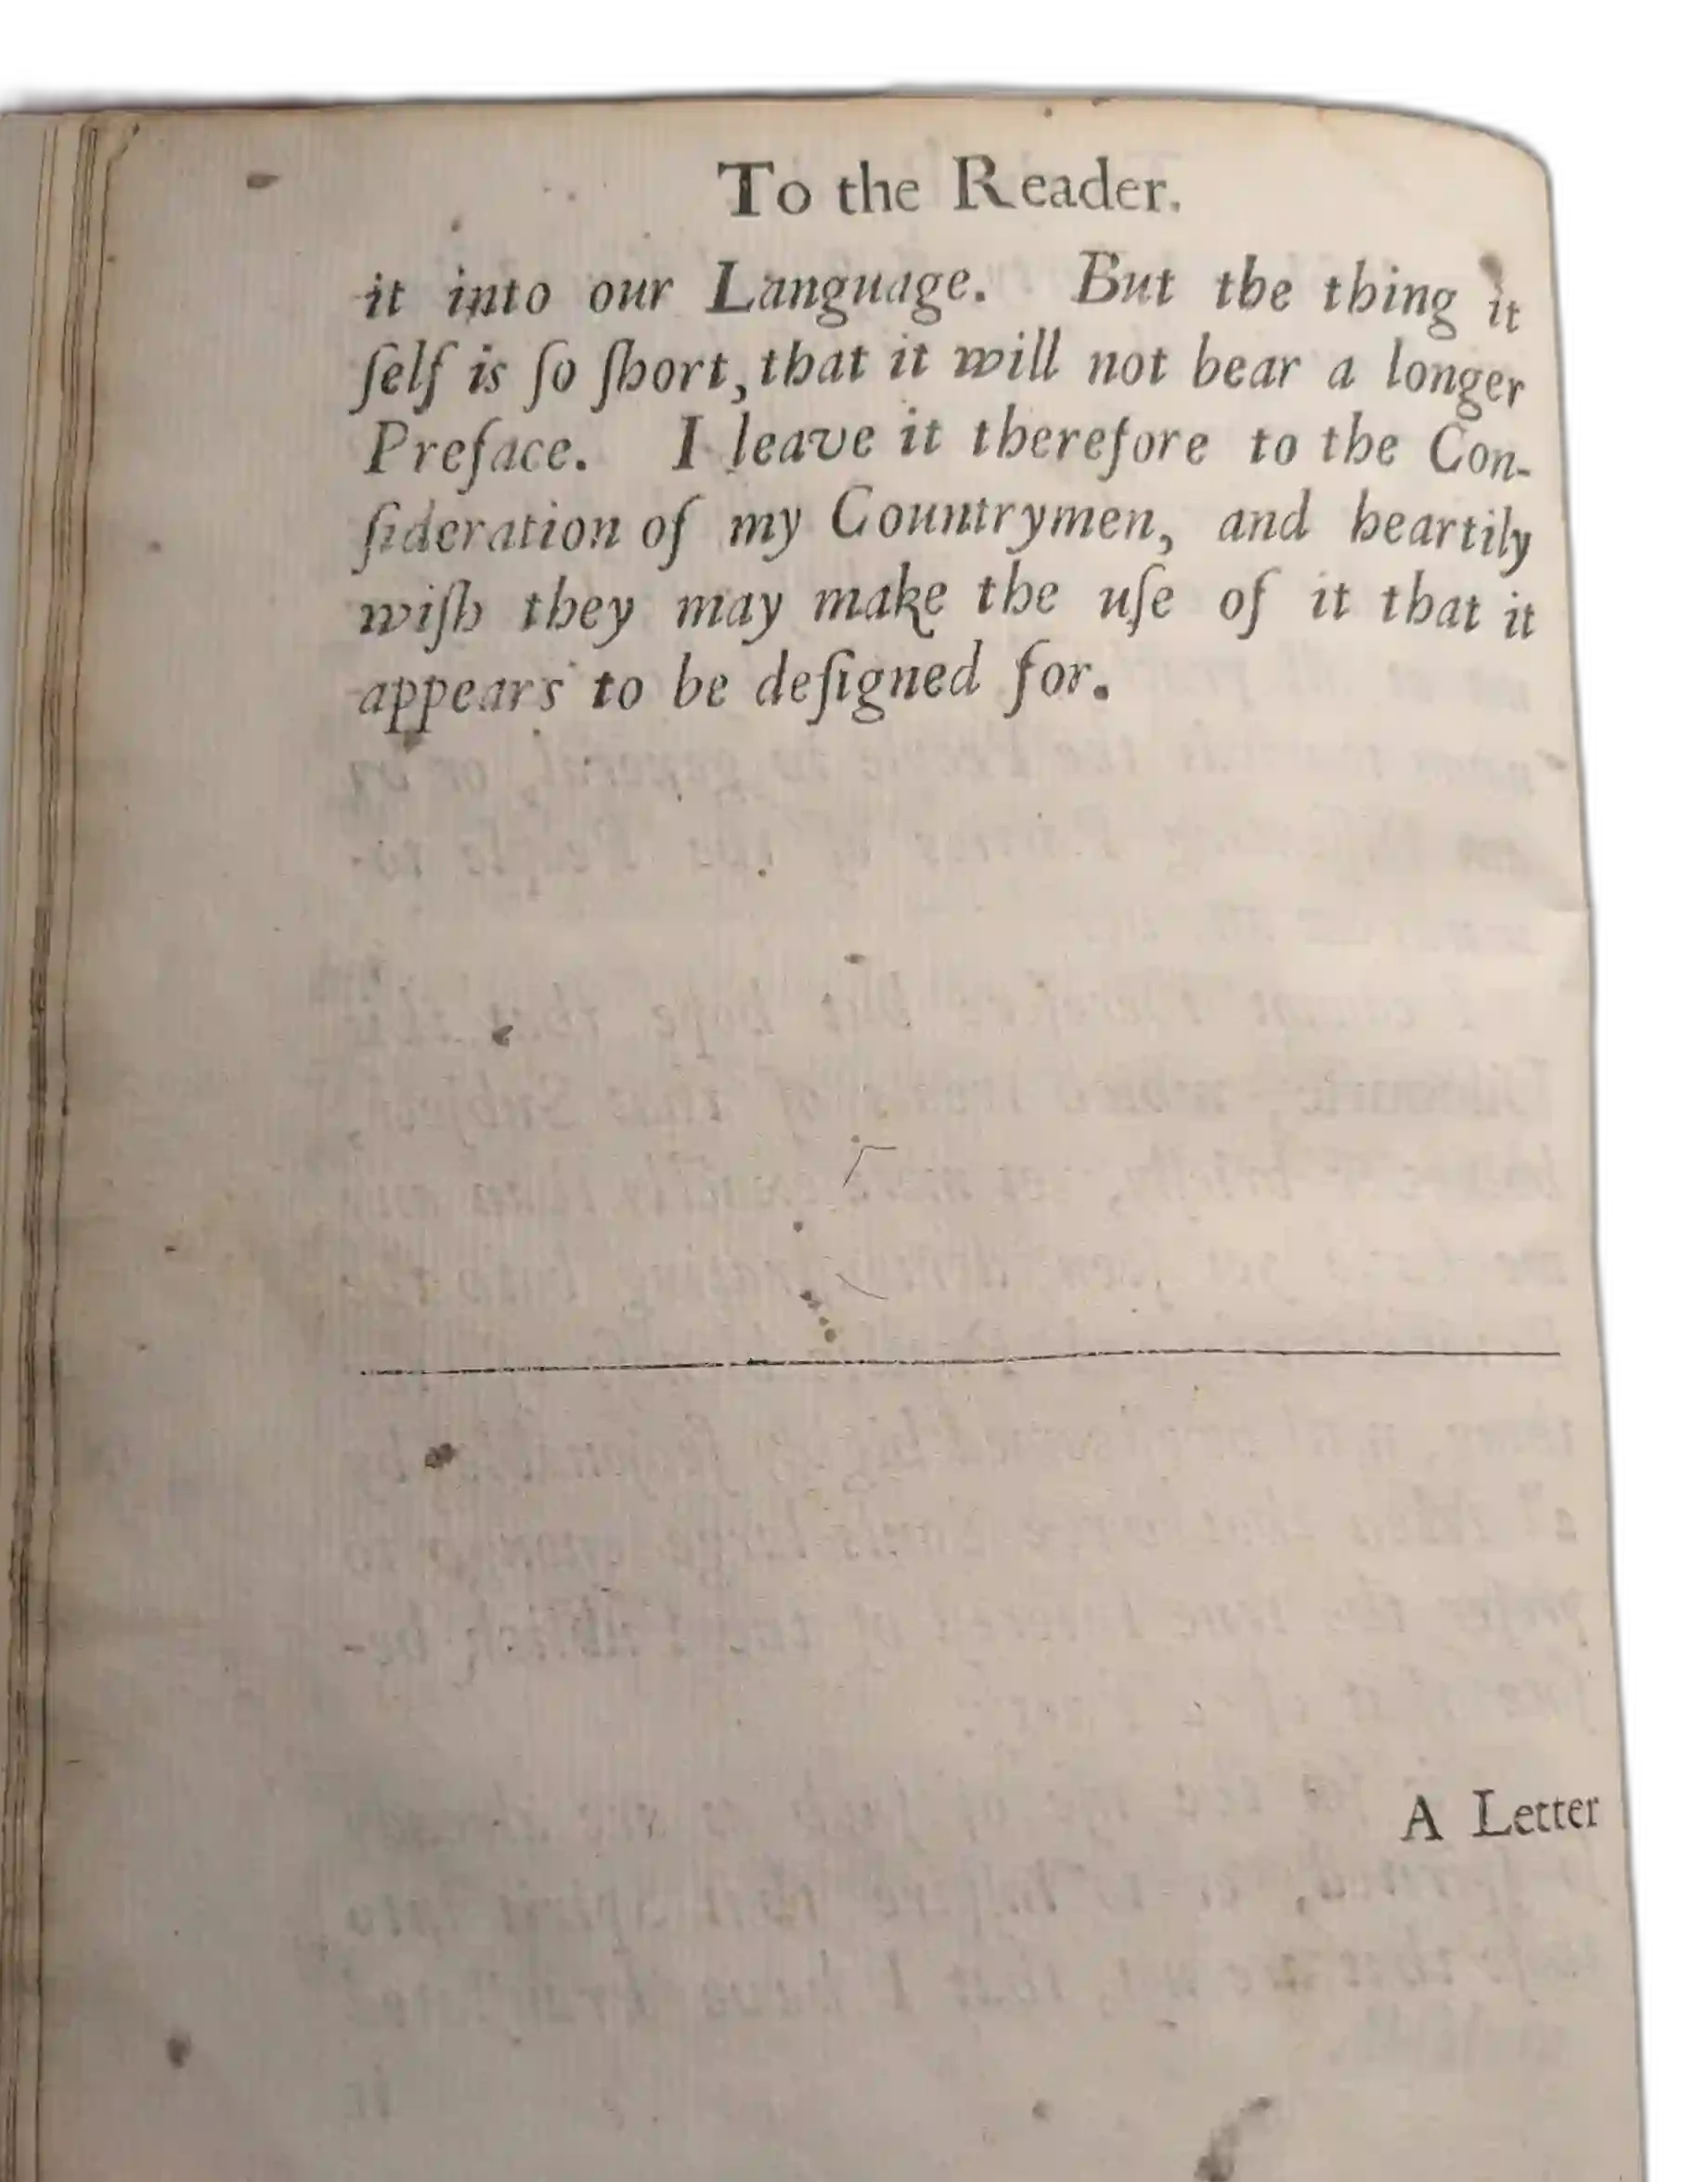 To the Reader.
it into our Language. But the thing it
ſelf is ſo ſhort, that it will not bear a longer
Preface. I leave it therefore to the Con-
ſideration of my Countrymen, and heartily
wiſh they may make the uſe of it that it
appears to be deſigned for.
A Letter